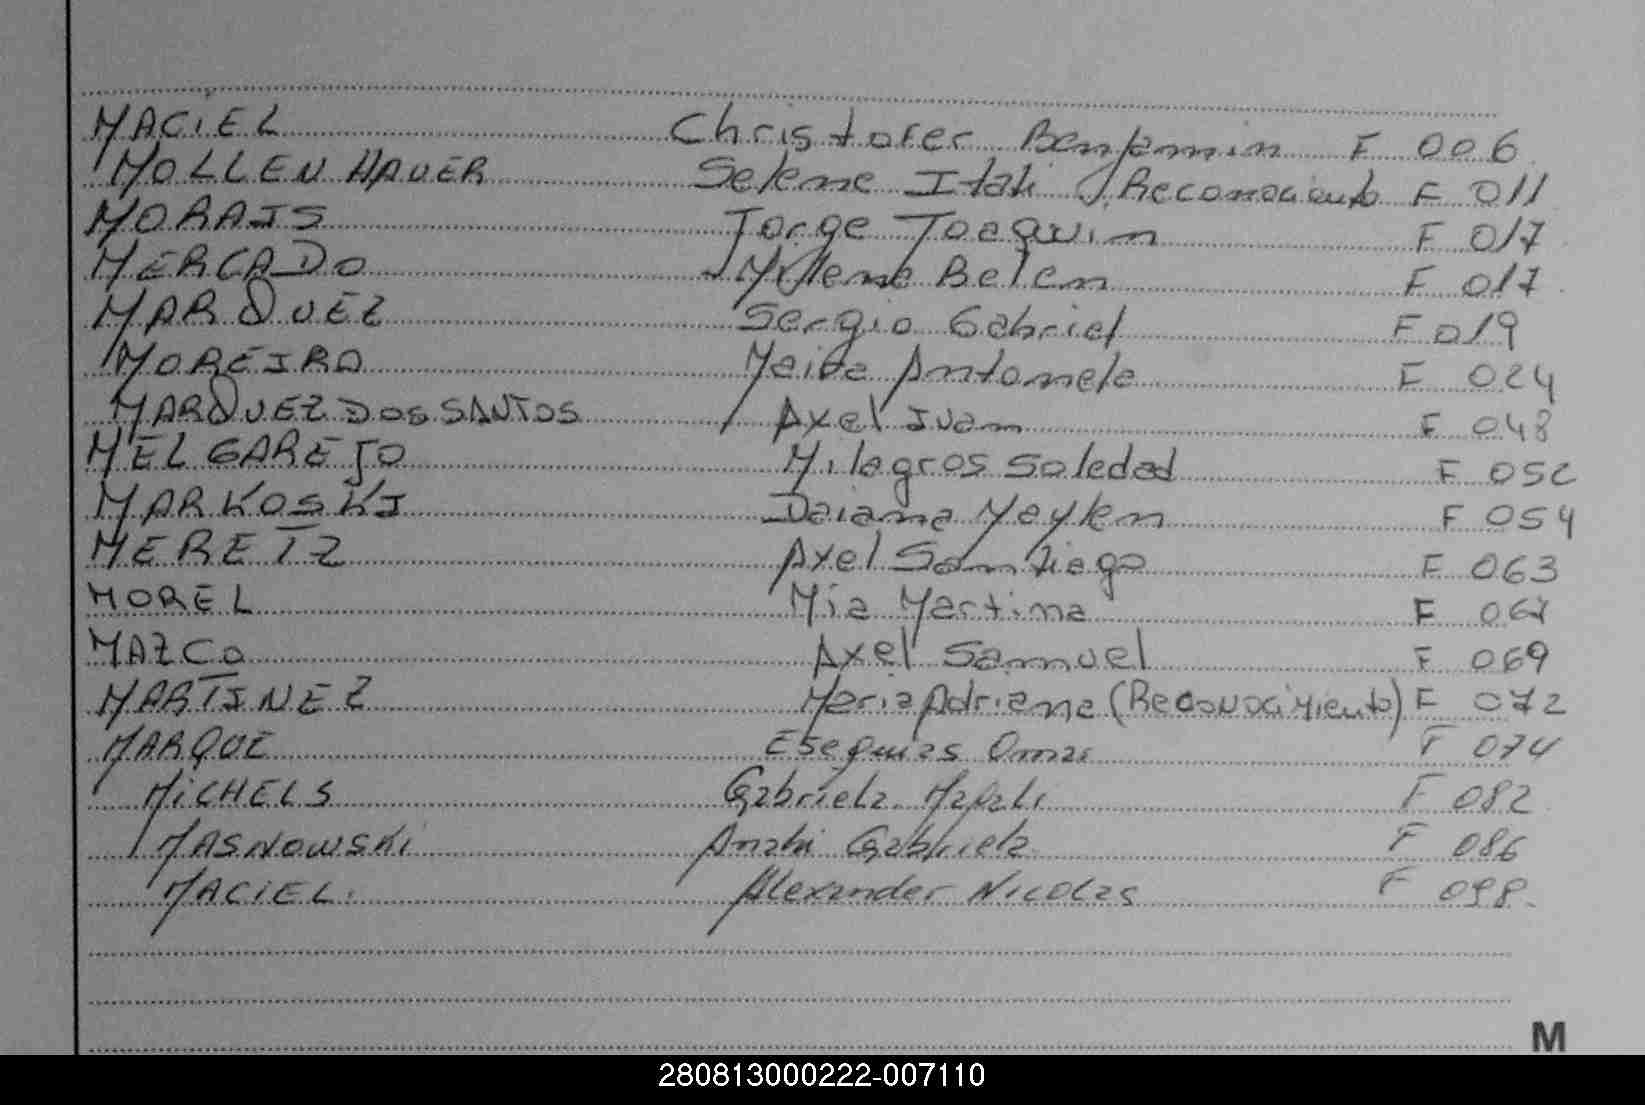 MACIEL Christofer Benjamin F 006
MOLLENHAUER Selene Itati (Reconociento F 011
MORAIS Jorge Joaquin F 017
MERCADO Mylene Belen F 017
MARQUEZ Sergio Gabriel F 019
MOREIRA Maite Antonela F 024
MARQUEZ DOS SANTOS Axel Juan F 048
MELGAREJO Milagros Soledad F 052
MARKOSKI Daiana Maylen F 054
MERETZ Axel Santiago F 063
MOREL Mia Martina F 067
MAZCO Axel Samuel F 069
MARTINEZ Maria Adriana (Reconocimiento) F 072
MARQUE Esequias Omar F 074
MICHELS Gabriela F 082
MASNOWSKI Anahi Gabriela F 086
MACIEL. Alexander Nicolas F 098.
M
280813000222-007110